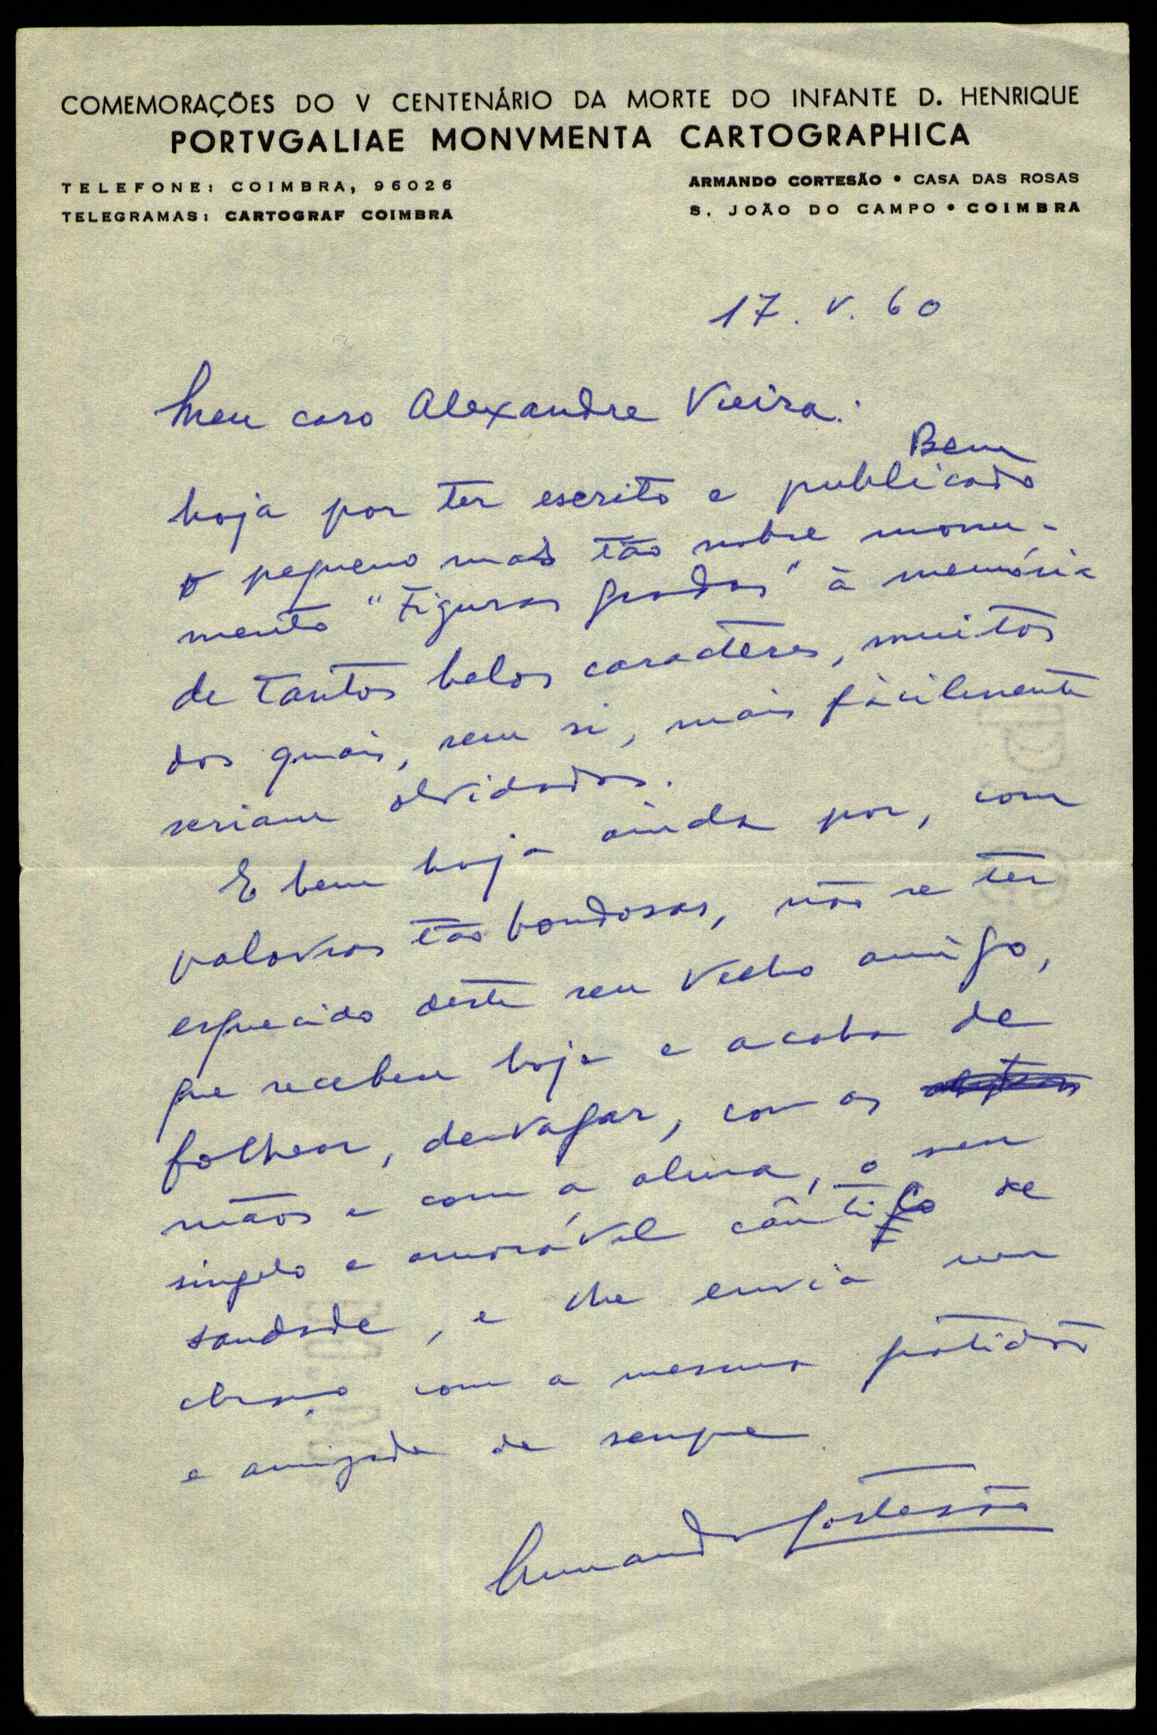 COMEMORAÇÕES DO V CENTENÁRIO DA MORTE DO INFANTE D. HENRIQUE
PORTVGALIAE MONVMENTA CARTOGRAPHICA
TELEFONE: COIMBRA, 96026
TELEGRAMAS: CARTOGRAF COIMBRA
ARMANDO CORTESÃO • CASA DAS ROSAS
S. JOÃO DO CAMPO • COIMBRA
17. V. 60
Meu caro Alexandre Vieira:
Bem
haja por ter escrito e publicado
o pequeno mas tão nobre monu-
mento "Figuras gradas" à memória
de tantos belos caracteres, muitos
dos quais, sem si, mais fàcilmente
seriam olvidados.
E bem haja ainda por, com
palavras tão bondosas, não se ter
esquecido deste seu velho amigo,
que recebeu hoje e acaba de
folhear, devagar, com as
mãos e com a alma, o seu
singelo e amorável cântico de
saudade, e lhe envia um
abraço com a mesma gratidão
e amizade de sempre
Armando Cortesão